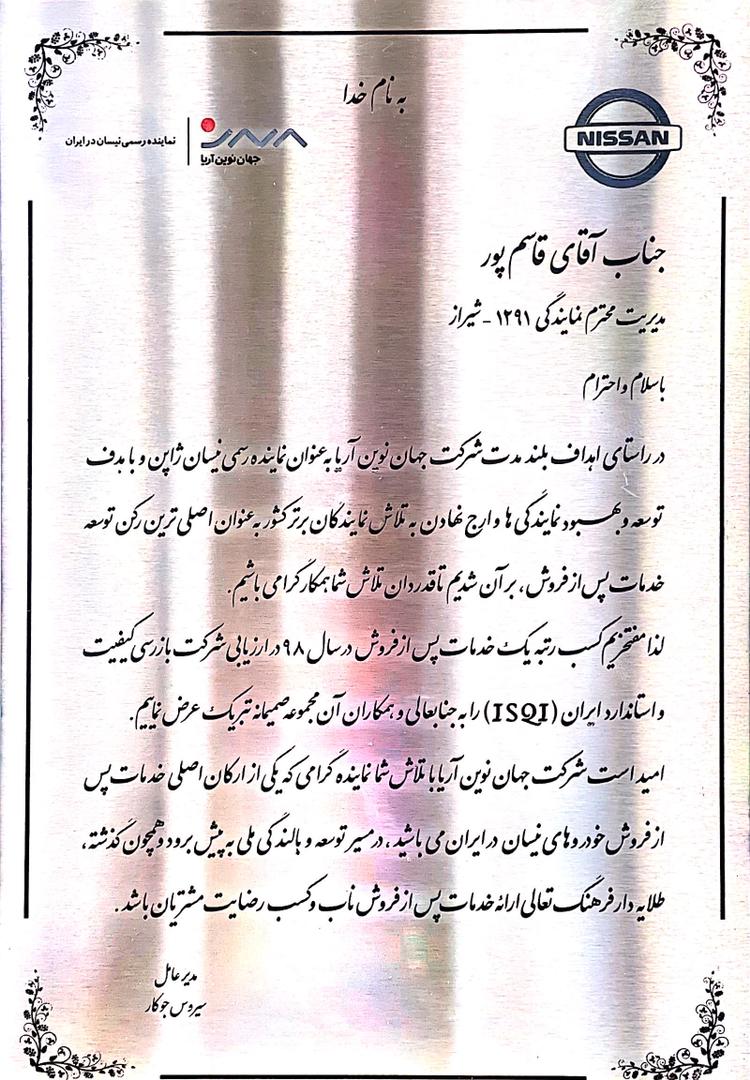 به نام خدا
NISSAN
جهان نوین آریا
نماینده رسمی نیسان در ایران
جناب آقای قاسم پور
مدیریت محترم نمایندگی ۱۲۹۱ - شیراز
باسلام و احترام
در راستای اهداف بلند مدت شرکت جهان نوین آریا به عنوان نماینده رسمی نیسان ژاپن و با هدف
توسعه و بهبود نمایندگی ها و ارج نهادن به تلاش نمایندگان برتر کشور به عنوان اصلی ترین رکن توسعه
خدمات پس از فروش، بر آن شدیم تا قدردان تلاش شما همکار گرامی باشیم.
لذا مفتخریم کسب رتبه یک خدمات پس از فروش در سال ۹۸ در ارزیابی شرکت بازرسی کیفیت
و استاندارد ایران (ISQI) را به جنابعالی و همکاران آن مجموعه صمیمانه تبریک عرض نماییم.
امید است شرکت جهان نوین آریا با تلاش شما نماینده گرامی که یکی از ارکان اصلی خدمات پس
از فروش خودروهای نیسان در ایران می باشید، در مسیر توسعه و بالندگی ملی به پیش برود و همچون گذشته،
طلایه دار فرهنگ تعالی ارائه خدمات پس از فروش ناب و کسب رضایت مشتریان باشد.
مدیر عامل
سیروس جوکار